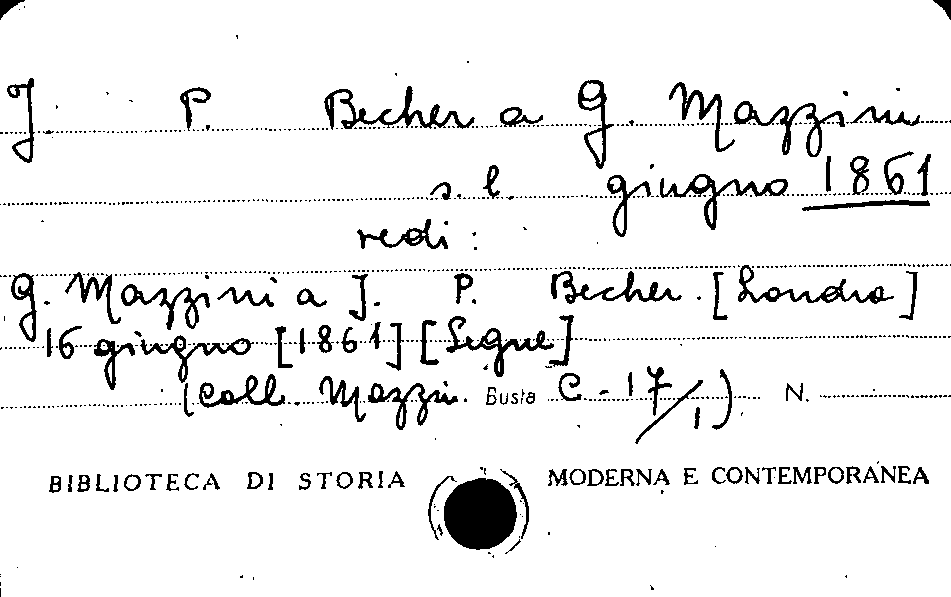 J. P. Becher a G. Mazzini
s.l. giugno 1861
vedi:
G. Mazzini a J. P. Becher. [Londra]
16 giugno [1861] [Segue]
(Coll. Mazzin. Busta C-17/1) N.
BIBLIOTECA DI STORIA MODERNA E CONTEMPORANEA